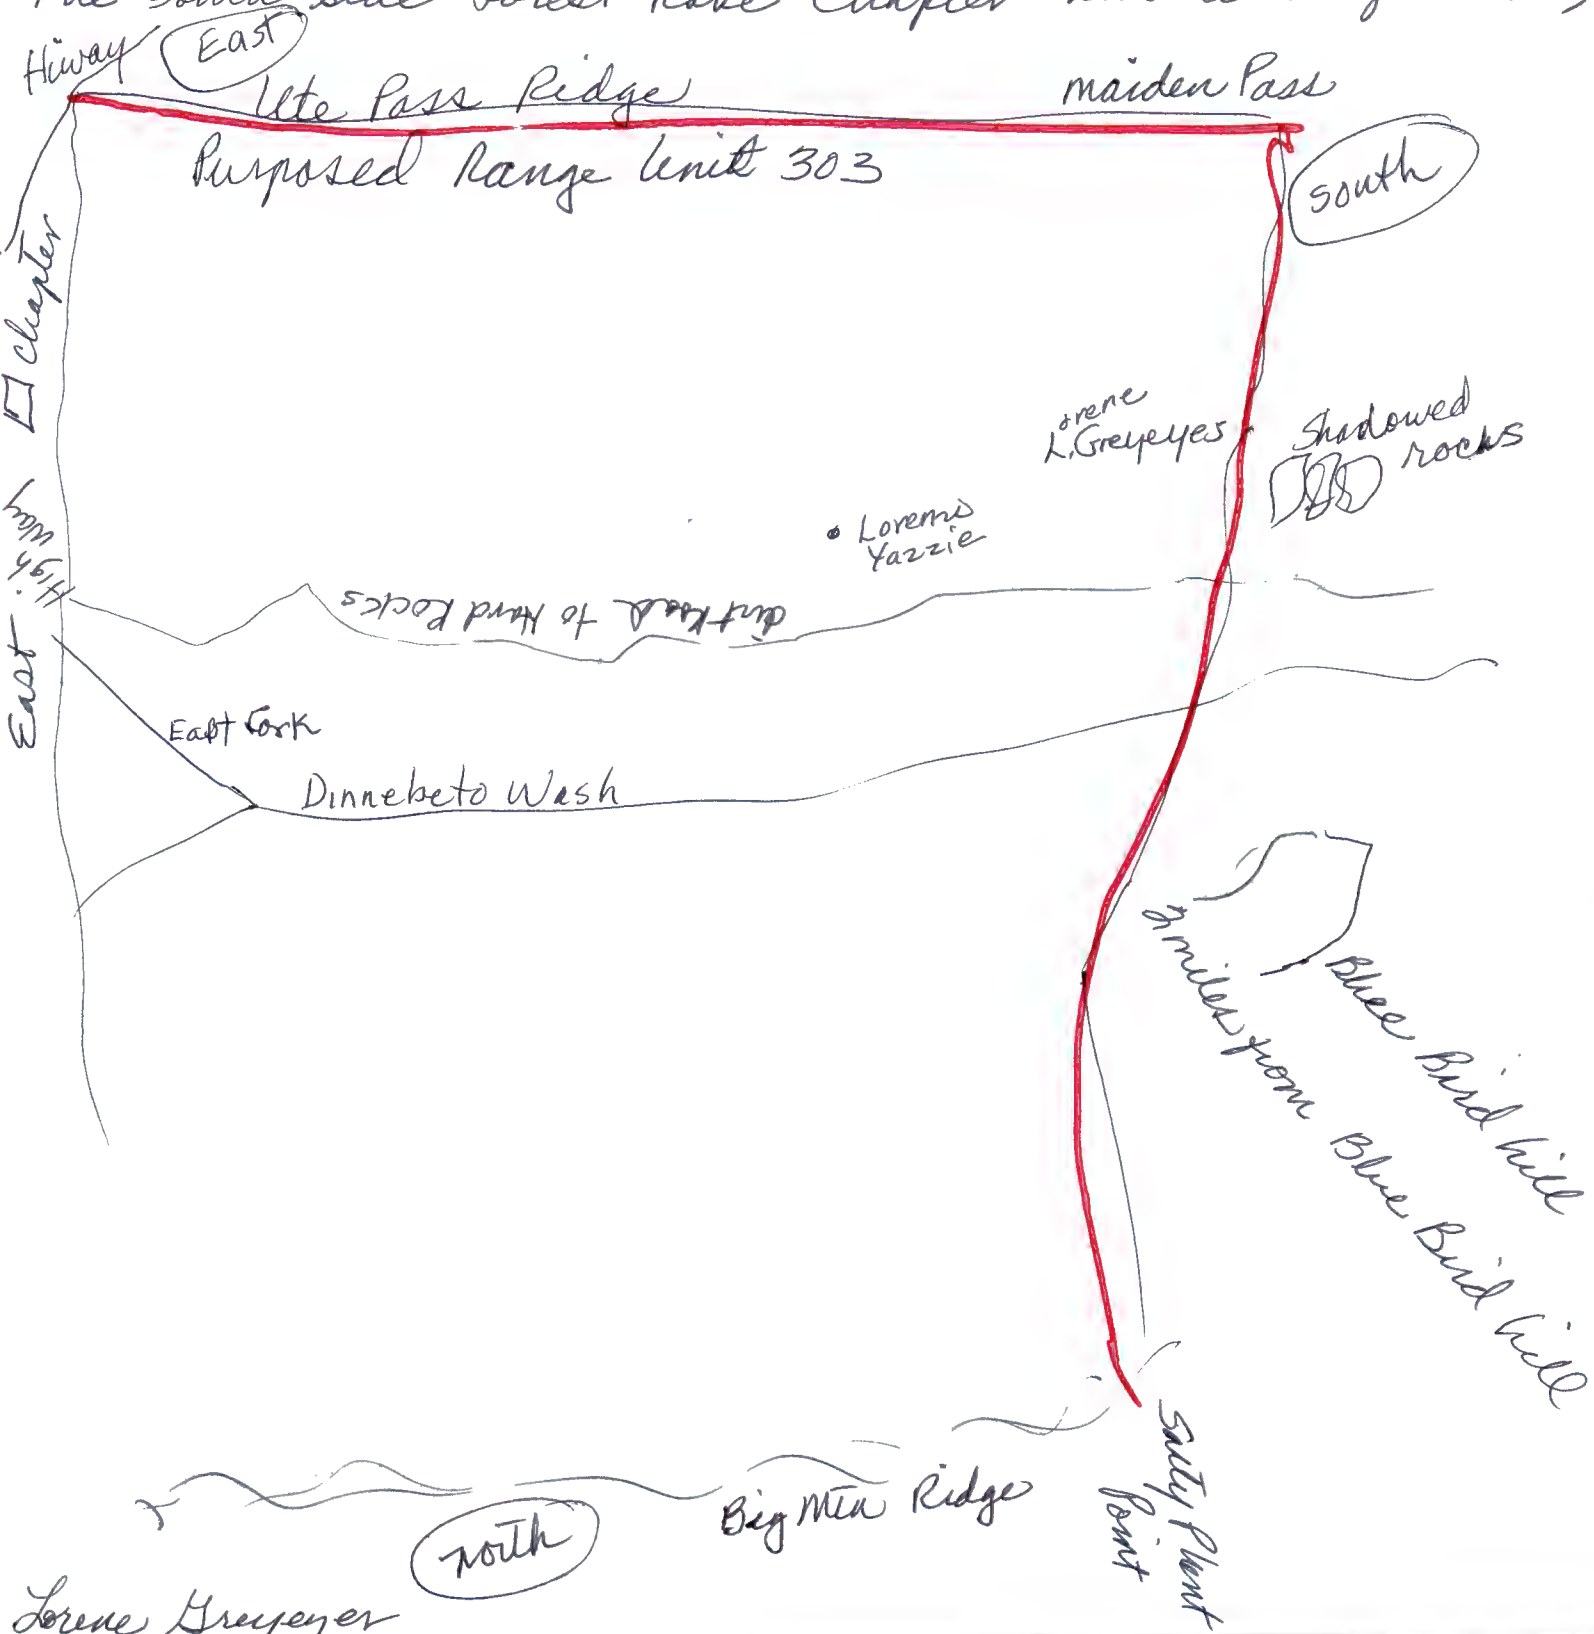 Hiway
East
Ute Pass Ridge
maiden Pass
Purposed Range Unit 303
south
chapter
Irene
L. Greyeyes
Shadowed
rocks
Yazzie
High way
dirt Road to Hard Rocks
East
East Fork
Dinnebeto Wash
2 miles from Blue Bird hill
Blue Bird hill
Salty Plant
Point
Big Mtn Ridge
north
Lorene Greyeyes